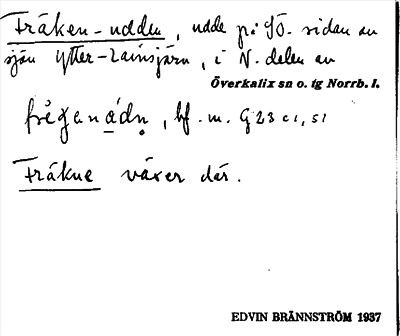 Fräken-udden, udde på SÖ. sidan av
sjön Ytter-Lainsjärv, i N. delen av
Överkalix sn o. tg Norrb. l.
frẹganádn, bf. m. G23 c1, s1
Fräkne växer där.
EDVIN BRÄNNSTRÖM 1937